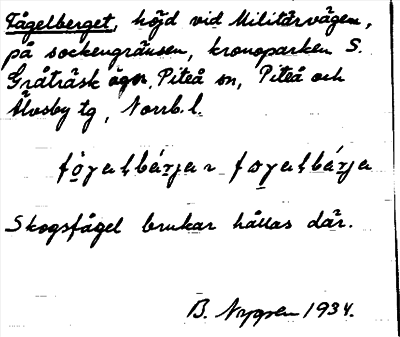 Fågelberget, höjd vid Militärvägen,
på sockengränsen, kronoparken S.
Gråträsk äger, Piteå sn, Piteå och
Älvsby tg, Norrb. l.
Skogsfågel brukar hållas där.
B. Nygren 1934.